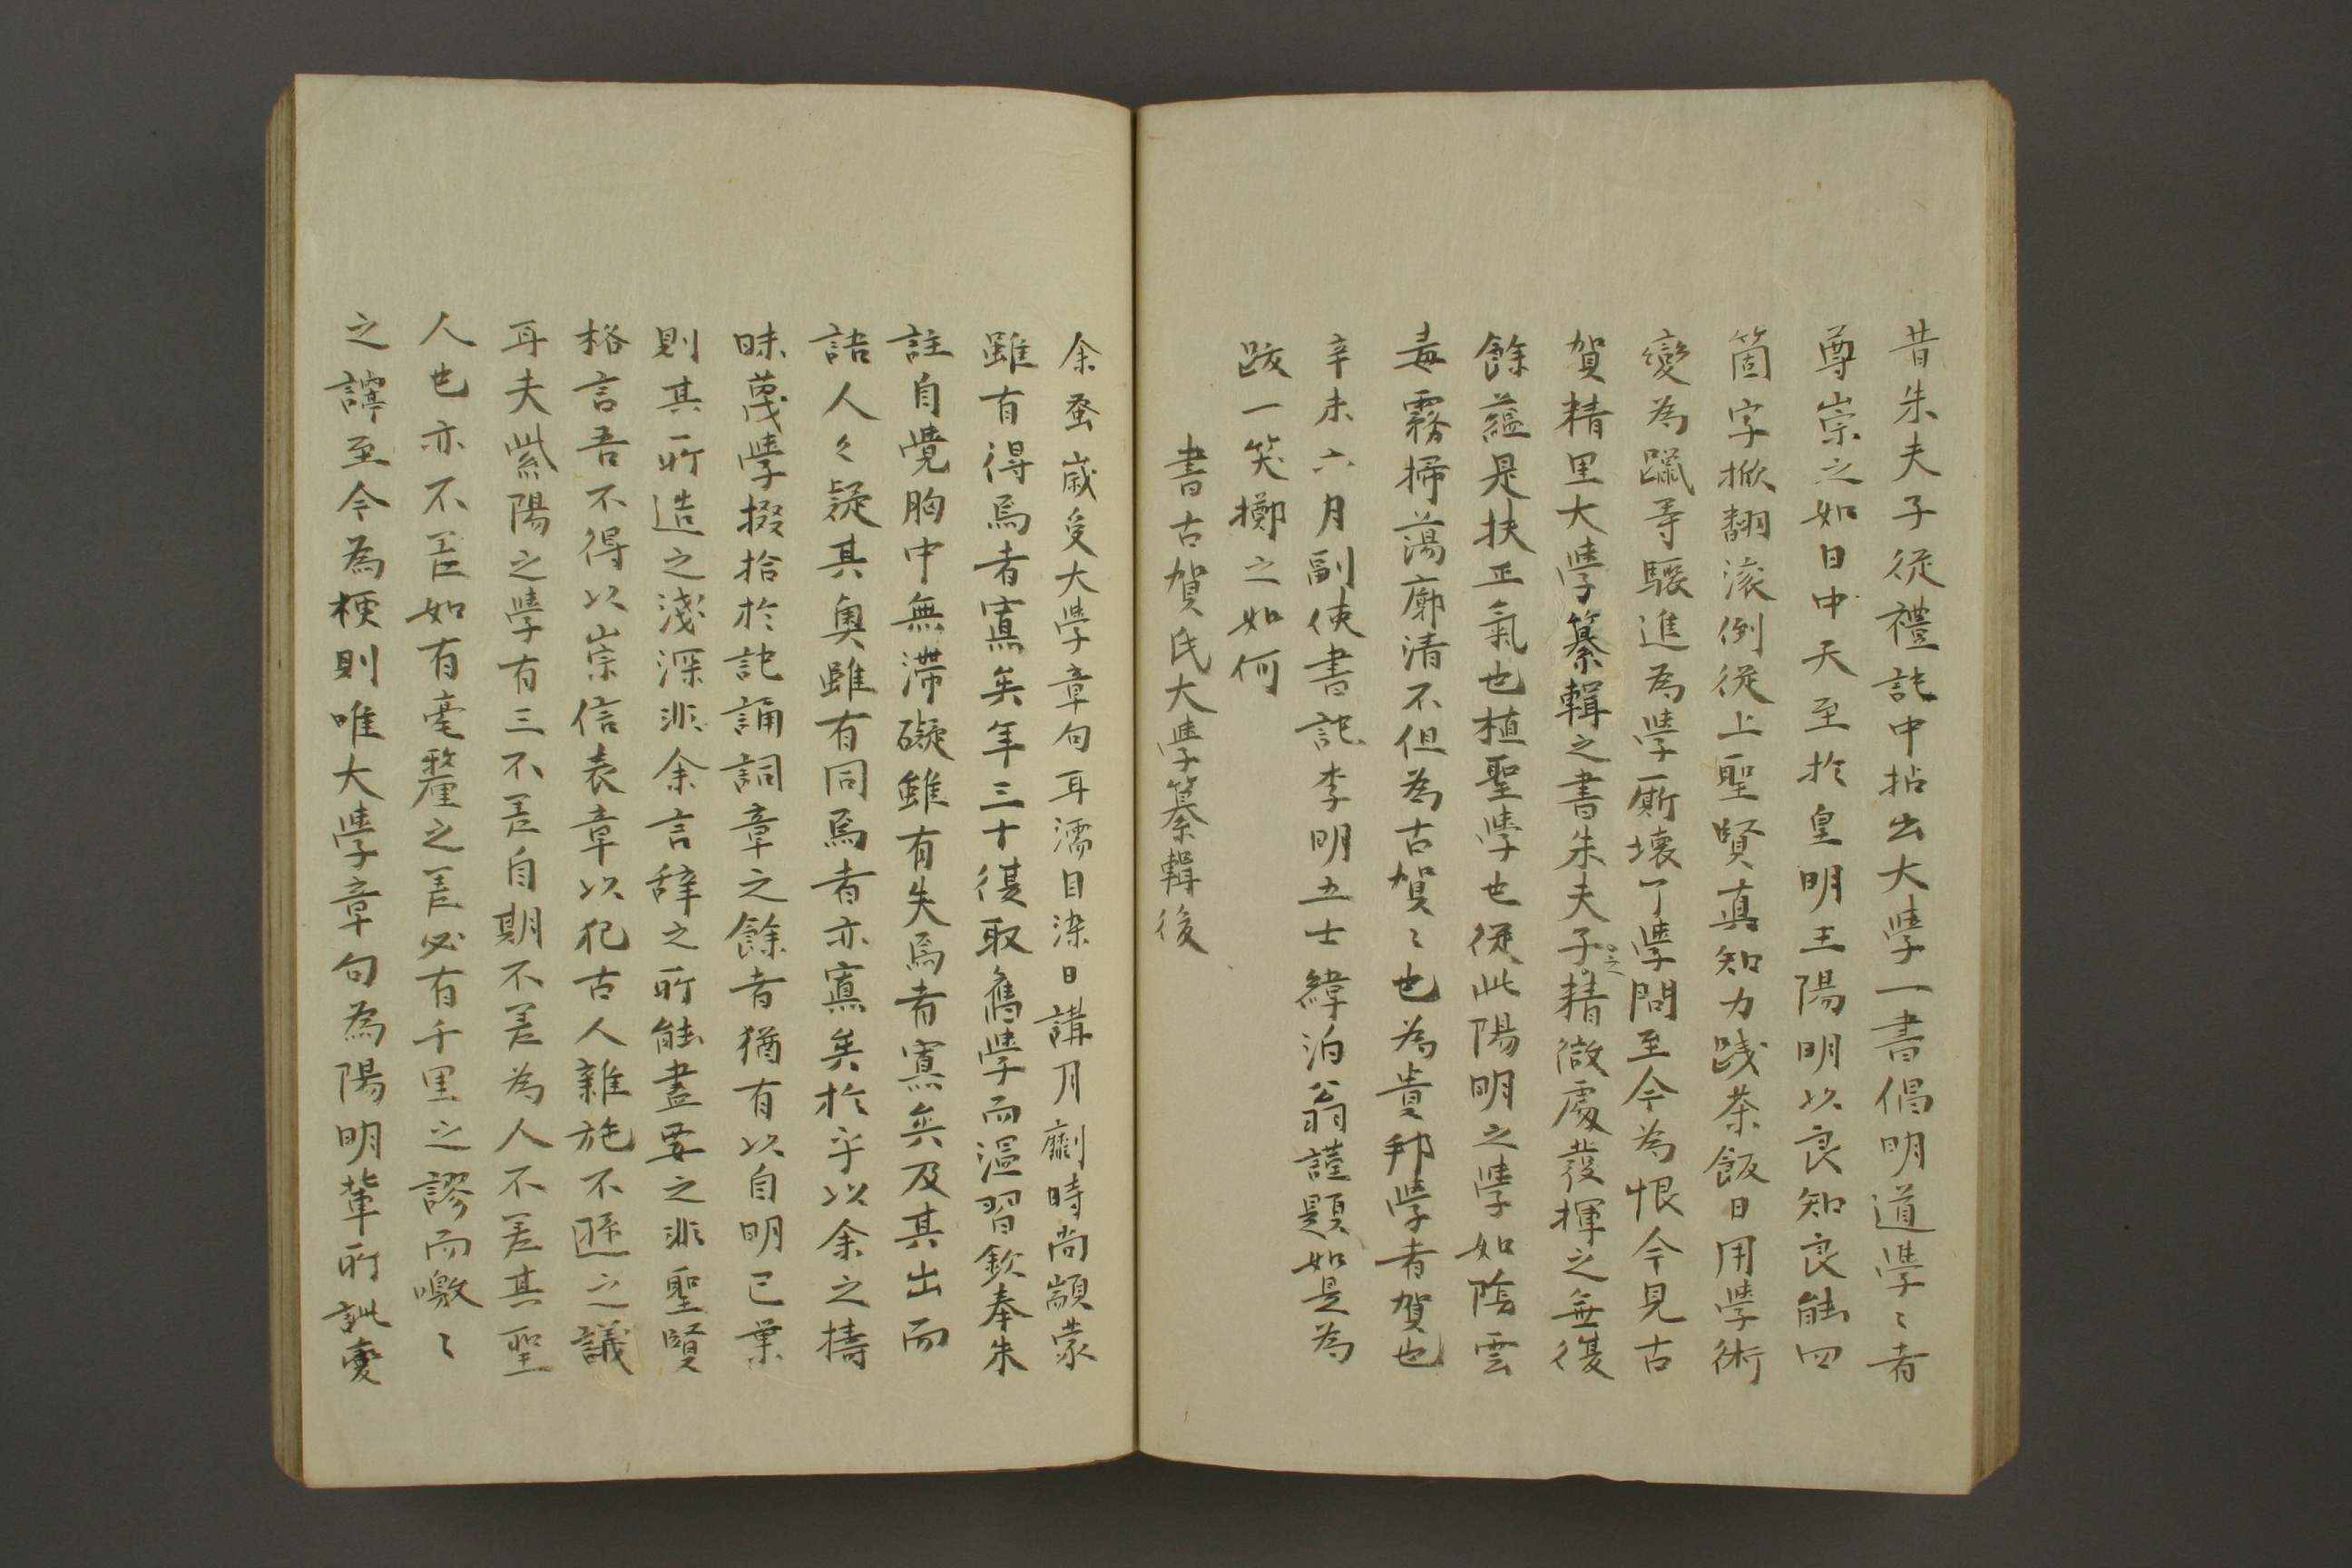 昔朱夫子從禮記中拈出大學一書倡明道學〻者
尊崇之如日中天至於皇明王陽明以良知良能四
箇字掀翻滚倒從上聖賢真知力踐茶飯日用學術
變為躐等驟進為學厮壞了學問至今為恨今見古
賀精里大學纂輯之書朱夫子之精微處發揮之無復
餘蘊是扶正氣也植聖學也從此陽明之學如陰雲
毒霧掃蕩廓清不但為古賀〻也為貴邦學者賀也
辛未六月副使書記李明五士緯泊翁謹題如是為
跋一笑擲之如何
書古賀氏大學纂輯後
余蚤歲受大學章句耳濡目染日講月劘時尚顓蒙
雖有得焉者寡矣年三十復取舊學而溫習欽奉朱
註自覺胸中無滯礙雖有失焉者寡矣及其出而
語人〻疑其奧雖有同焉者亦寡矣於乎以余之擣
昧蔑學掇拾於記誦詞章之餘者猶有以自明已業
則其所造之淺深非余言辭之所能盡要之非聖賢
格言吾不得以崇信表章以犯古人雜施不遜之議
耳夫紫陽之學有三不差自期不差為人不差其聖
人也亦不差如有毫釐之差必有千里之謬而噭〻
之謗至今為梗則唯大學章句為陽明輩所訛變